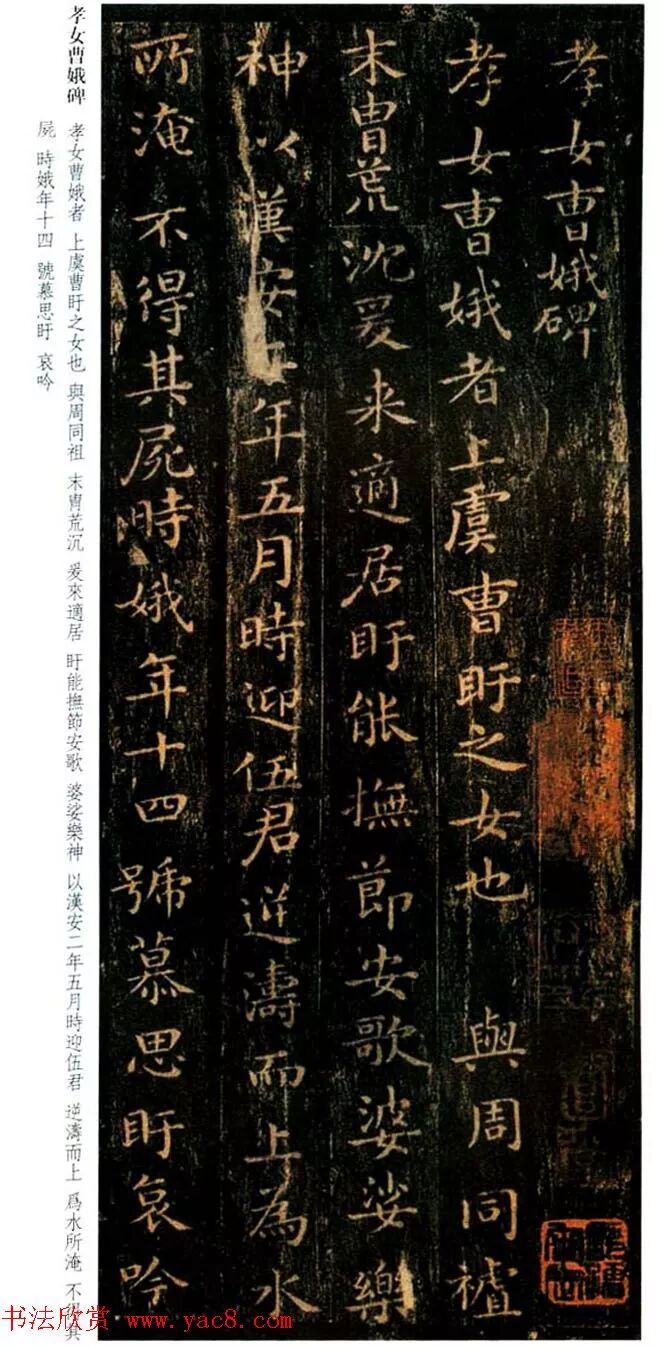 孝女曹娥碑
孝女曹娥者上虞曹盱之女也 與周同
末冑荒沈爰来適居盱能撫節安歌婆娑樂
神以漢安二年五月時迎伍君逆濤而上為水
所淹不得其屍時娥年十四號慕思盱哀吟
孝女曹娥碑
孝女曹娥者 上虞曹盱之女也 與周同祖 末冑荒沉 爰來適居 盱能撫節安歌 婆娑樂神 以漢安二年五月時迎伍君 逆濤而上 爲水所淹 不得其
屍 時娥年十四 號慕思盱 哀吟
书法欣赏 www.yac8.com